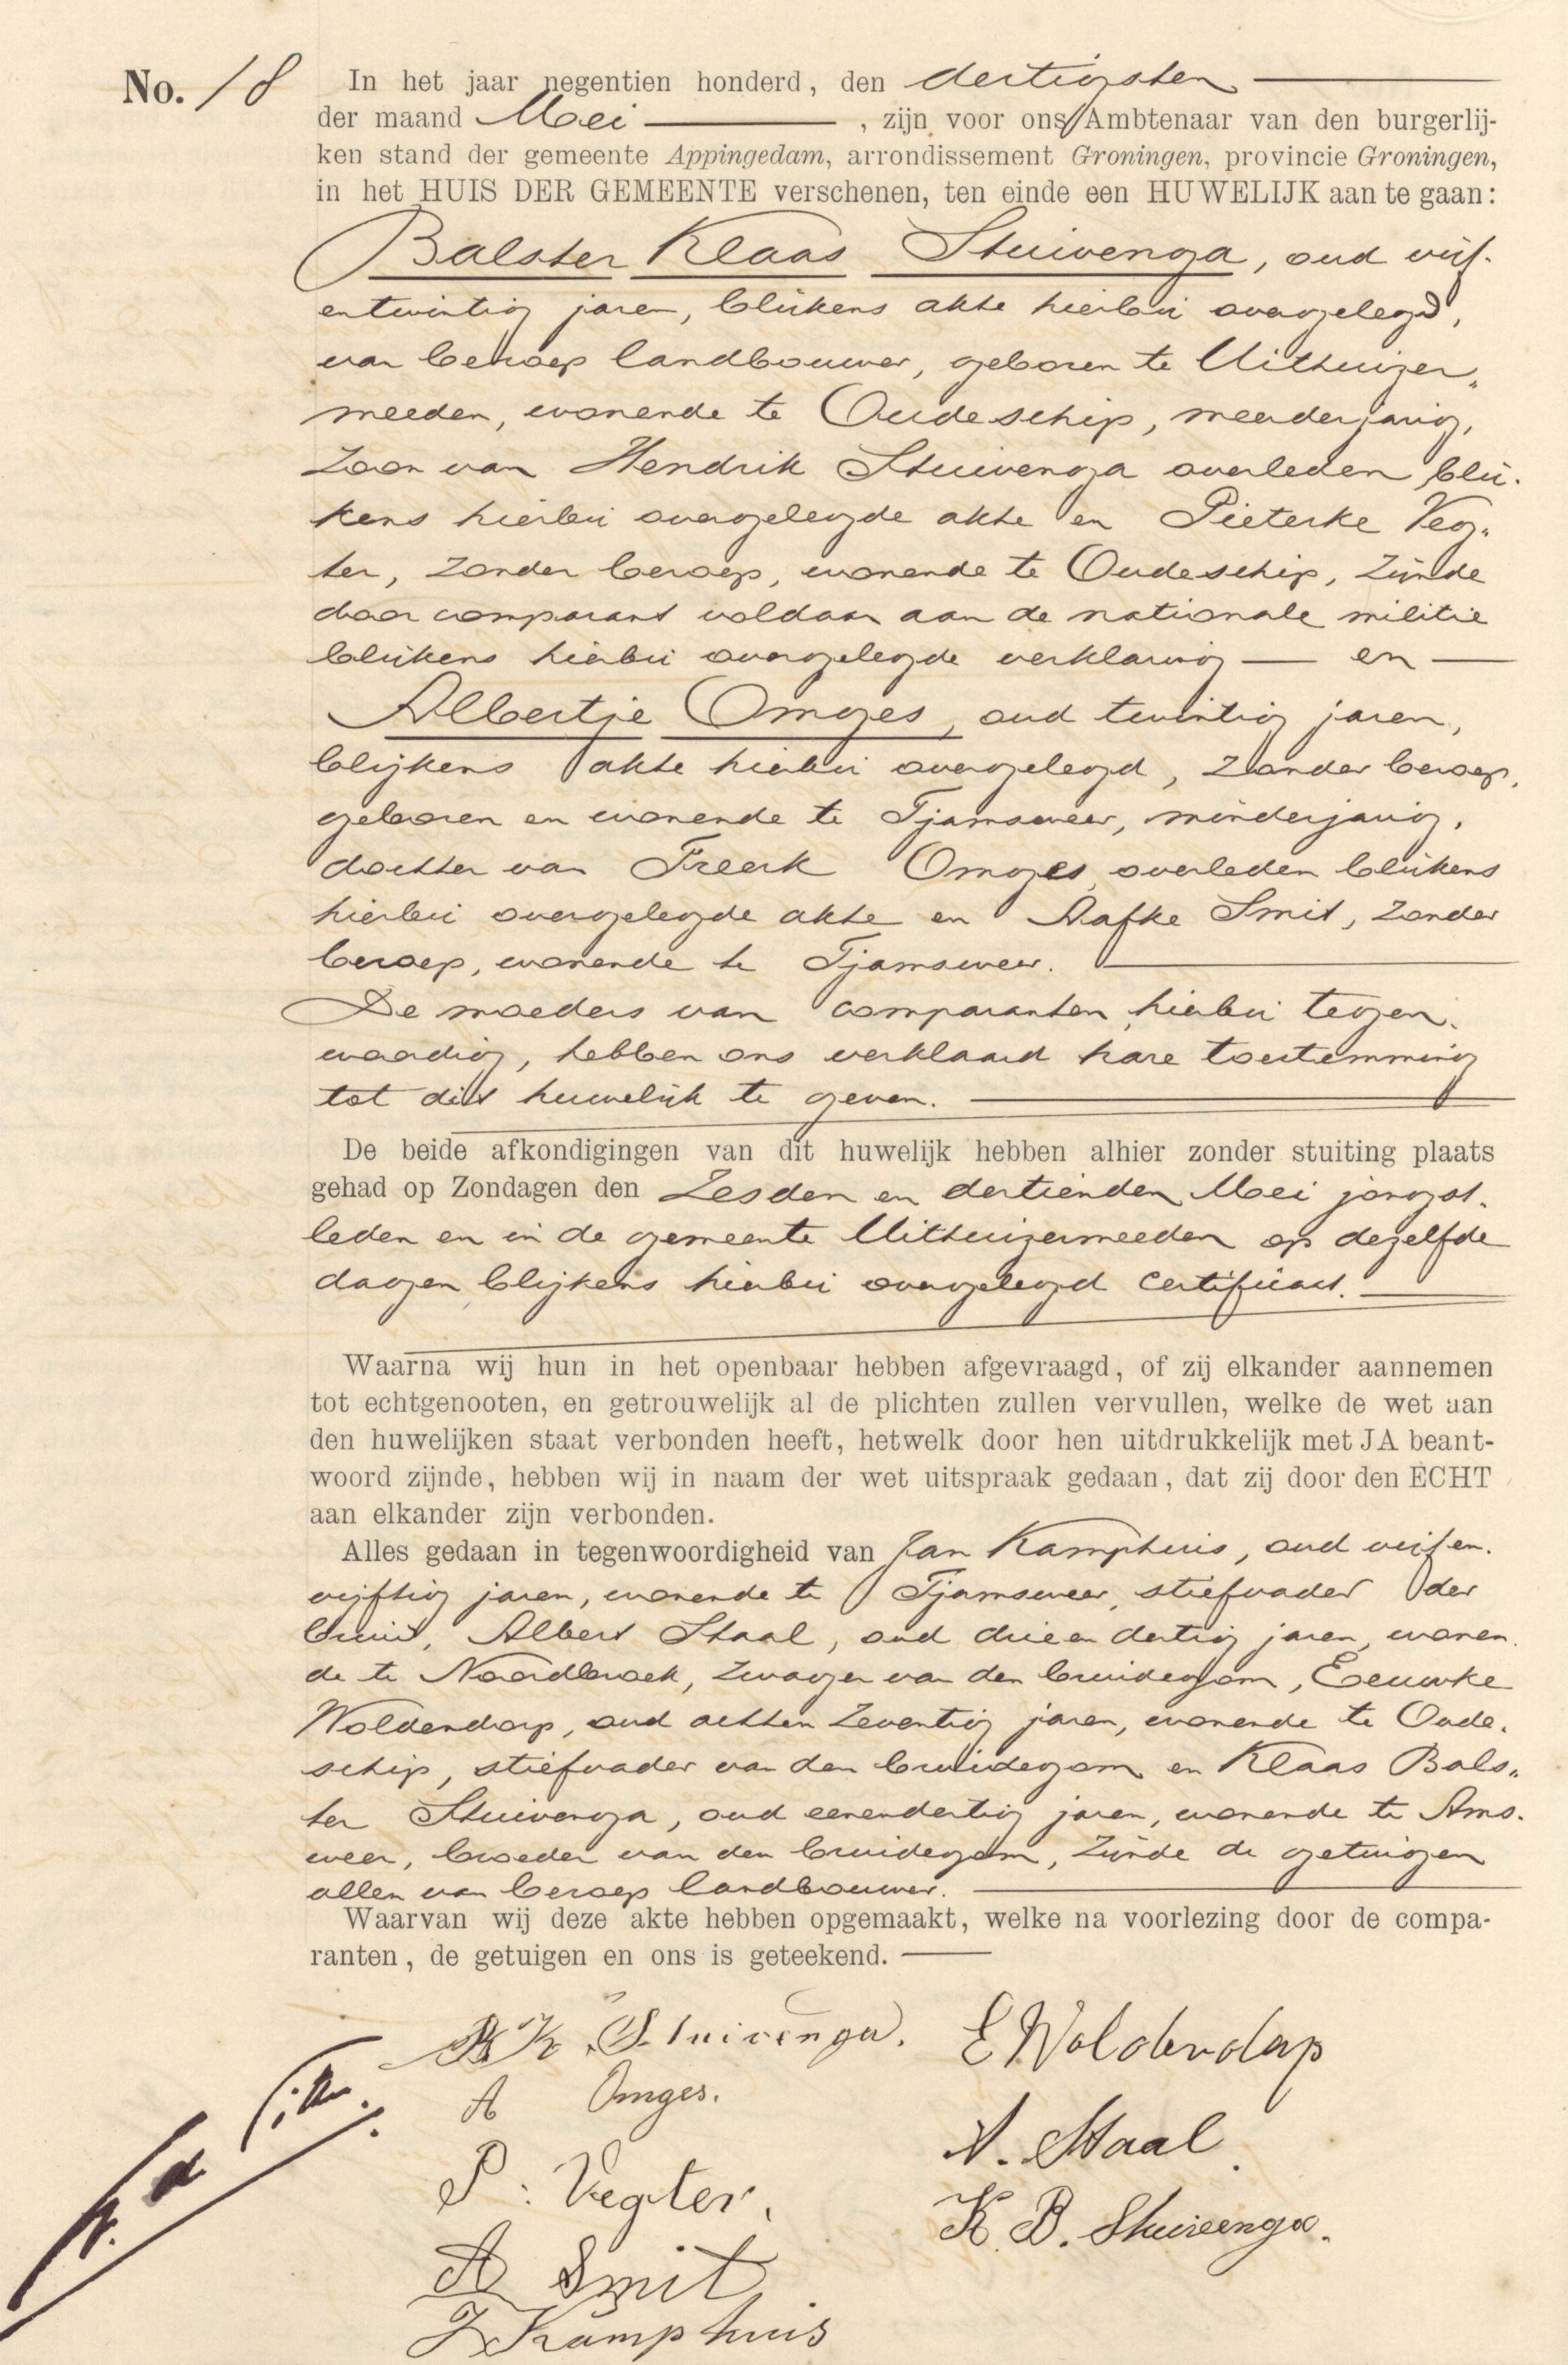 No. 18
In het jaar negentien honderd, den dertigsten
der maand Mei, zijn voor ons Ambtenaar van den burgerlij-
ken stand der gemeente Appingedam, arrondissement Groningen, provincie Groningen,
in het HUIS DER GEMEENTE verschenen, ten einde een HUWELIJK aan te gaan:
Balster Klaas Stuivenga, oud vijf-
entwintig jaren, blijkens akte hierbij overgelegd,
van beroep landbouwer, geboren te Uithuizer„
meeden, wonende te Oudeschip, meerderjarig,
zoon van Hendrik Stuivenga overleden blij-
kens hierbij overgelegde akte en Pieterke Veg„
ter, zonder beroep, wonende te Oudeschip, zijnde
door comparant voldaan aan de nationale militie
blijkens hierbij overgelegde verklaring — en —
Albertje Omges, oud twintig jaren,
blijkens akte hierbij overgelegd, zonder beroep,
geboren en wonende te Tjamsweer, minderjarig,
dochter van Freerk Omges, overleden blijkens
hierbij overgelegde akte en Aafke Smit, zonder
beroep, wonende te Tjamsweer.
De moeders van comparanten, hierbij tegen-
woordig, hebben ons verklaard hare toestemming
tot dit huwelijk te geven.
De beide afkondigingen van dit huwelijk hebben alhier zonder stuiting plaats
gehad op Zondagen den zesden en dertienden Mei jongst-
leden en in de gemeente Uithuizermeeden op dezelfde
dagen, blijkens hierbij overgelegd certificaat.
Waarna wij hun in het openbaar hebben afgevraagd, of zij elkander aannemen
tot echtgenooten, en getrouwelijk al de plichten zullen vervullen, welke de wet aan
den huwelijken staat verbonden heeft, hetwelk door hen uitdrukkelijk met JA beant-
woord zijnde, hebben wij in naam der wet uitspraak gedaan, dat zij door den ECHT
aan elkander zijn verbonden.
Alles gedaan in tegenwoordigheid van Jan Kamphuis, oud vijfen-
vijftig jaren, wonende te Tjamsweer, stiefvader der
bruid, Albert Staal, oud drieendertig jaren, wonen-
de te Noordbroek, zwager van den bruidegom, Eeuwke
Woldendorp, oud achten zeventig jaren, wonende te Oude-
schip, stiefvader van den bruidegom en Klaas Bals„
ter Stuivenga, oud eenendertig jaren, wonende te Ams-
weer, broeder van den bruidegom, zijnde de getuigen
allen van beroep landbouwer.
Waarvan wij deze akte hebben opgemaakt, welke na voorlezing door de compa-
ranten, de getuigen en ons is geteekend.
B K Stuivenga. E Woldendorp
A Omges.
P. Vegter. A. Staal.
A Smit K. B. Stuivenga.
J Kamphuis